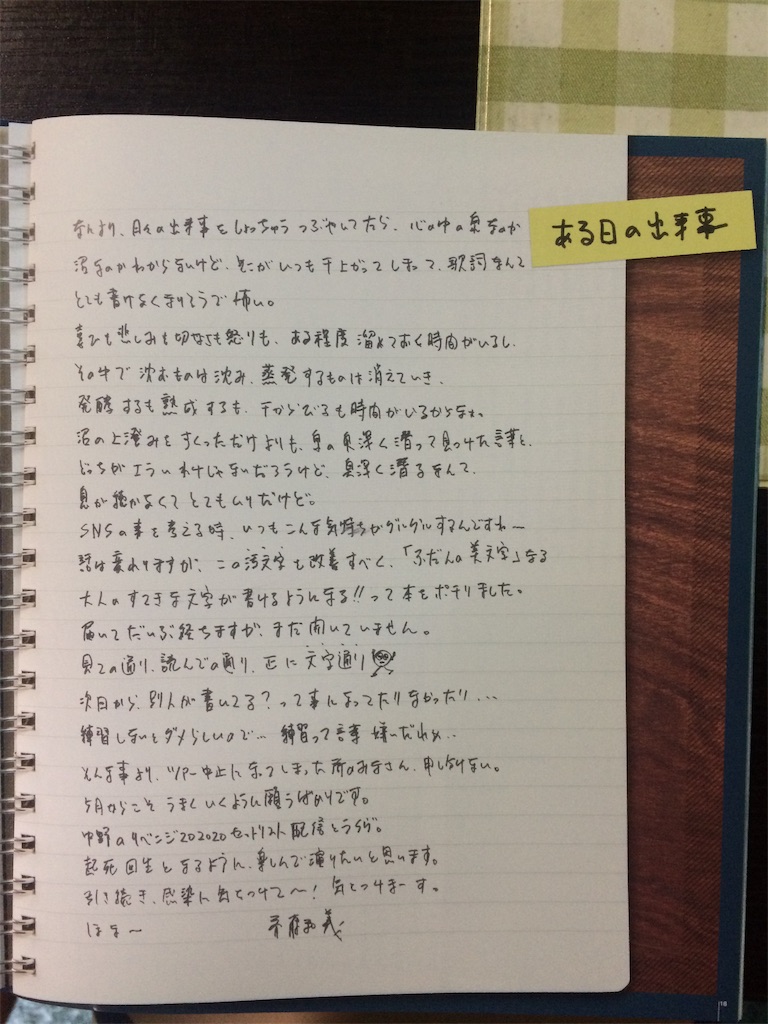 ある日の出来事
なんせ、日々の出来事をしょっちゅうつぶやいてたら、心の中の泉なのか
沼なのかわからないけど、そこがいつも干上がってしまって、歌詞なんて
とても書けなくなりそうで怖い。
喜びも悲しみも切なさも怒りも、ある程度溜めておく時間がいるし、
その中で沈むものは沈み、蒸発するものは消えていき、
発酵するも熟成するも、干からびるも時間がいるからなぁ。
沼の上澄みをすくっただけよりも、泉の奥深く潜って見つけた言葉と、
どっちがエラいわけじゃないだろうけど、奥深く潜るなんて、
息が続かなくてとてもムリだけど。
SNSの事を考える時、いつもこんな気持ちがグルグルするんですね〜
話は変わりますが、この汚文字も改善すべく、「ふだんの美文字」なる
大人のすてきな文字が書けるようになる!!って本をポチりました。
届いてだいぶ経ちますが、まだ開いていません。
見ての通り、読んでの通り、正に文字通り
次回から、別人が書いてる?って事になってたりなかったり...
練習しないとダメらしいので... 練習って言葉嫌いだわぁ..
そんな事より、ツアー中止になってしまった所のみなさん、申し訳ない。
5月からこそうまくいくように願うばかりです。
中野のリベンジ202020セットリスト配信とうらら。
起死回生となるように、楽しんで演りたいと思います。
引き続き、感染に気をつけて〜!気をつけまーす。
ほな〜 斉藤和義
18